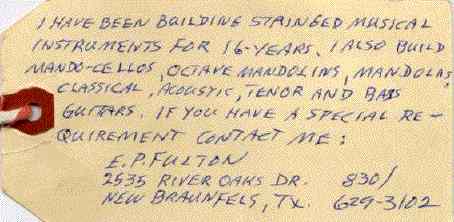 I HAVE BEEN BUILDING STRINGED MUSICAL
INSTRUMENTS FOR 16-YEARS. I ALSO BUILD
MANDO-CELLOS, OCTAVE MANDOLINS, MANDOLAS,
CLASSICAL, ACOUSTIC, TENOR AND BASS
GUITARS. IF YOU HAVE A SPECIAL RE-
QUIREMENT CONTACT ME:
E.P. FULTON
2535 RIVER OAKS DR. 830/
NEW BRAUNFELS, TX. 629-3102